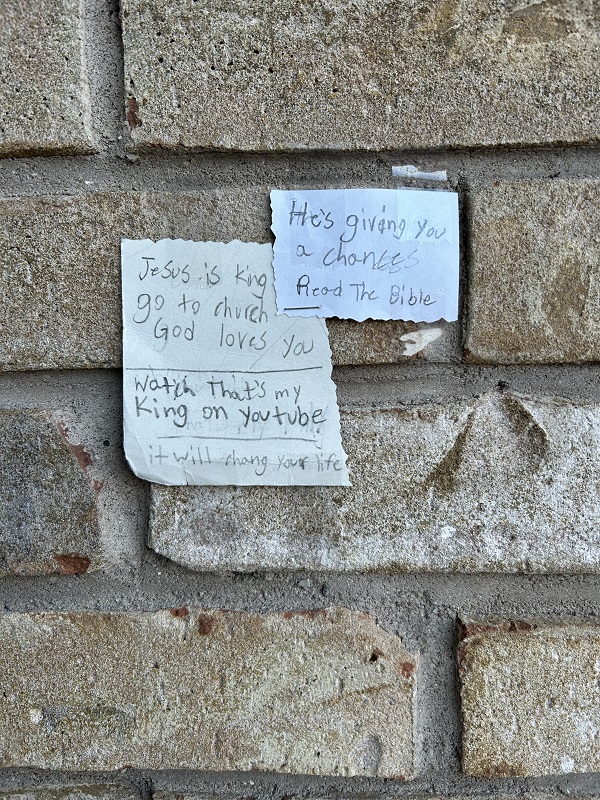 He's giving you
a changes
Read The Bible
Jesus is king
go to church
God loves you
watch That's my
King on youtube
it will chang your life